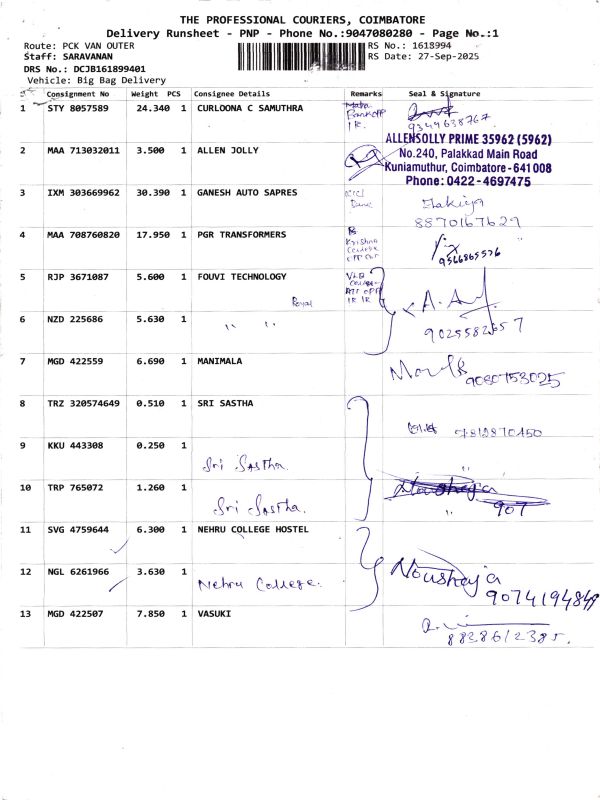 THE PROFESSIONAL COURIERS, COIMBATORE
Delivery Runsheet - PNP - Phone No.:9047080280 - Page No.:1
Route: PCK VAN OUTER RS No.: 1618994
Staff: SARAVANAN RS Date: 27-Sep-2025
DRS No.: DCJB161899401
Vehicle: Big Bag Delivery
Consignment No Weight PCS Consignee Details Remarks Seal & Signature
1 STY 8057589 24.340 1 CURLOONA C SAMUTHRA
9349638767
ALLENSOLLY PRIME 35962 (5962)
2 MAA 713032011 3.500 1 ALLEN JOLLY No.240, Palakkad Main Road
Kuniamuthur, Coimbatore - 641 008
Phone: 0422 - 4697475
3 IXM 303669962 30.390 1 GANESH AUTO SAPRES
8870167629
4 MAA 708760820 17.950 1 PGR TRANSFORMERS B
Krishna
College
OPP
9566865576
5 RJP 3671087 5.600 1 FOUVI TECHNOLOGY VLB
College
OPP
Royal
6 NZD 225686 5.630 1 " "
9025582657
7 MGD 422559 6.690 1 MANIMALA
9080753025
8 TRZ 320574649 0.510 1 SRI SASTHA
9 KKU 443308 0.250 1
Sri Sastha
10 TRP 765072 1.260 1
Sri Sastha. 907
11 SVG 4759644 6.300 1 NEHRU COLLEGE HOSTEL
12 NGL 6261966 3.630 1 Nehru College. Noushaja
9074194849
13 MGD 422507 7.850 1 VASUKI
8838612385.